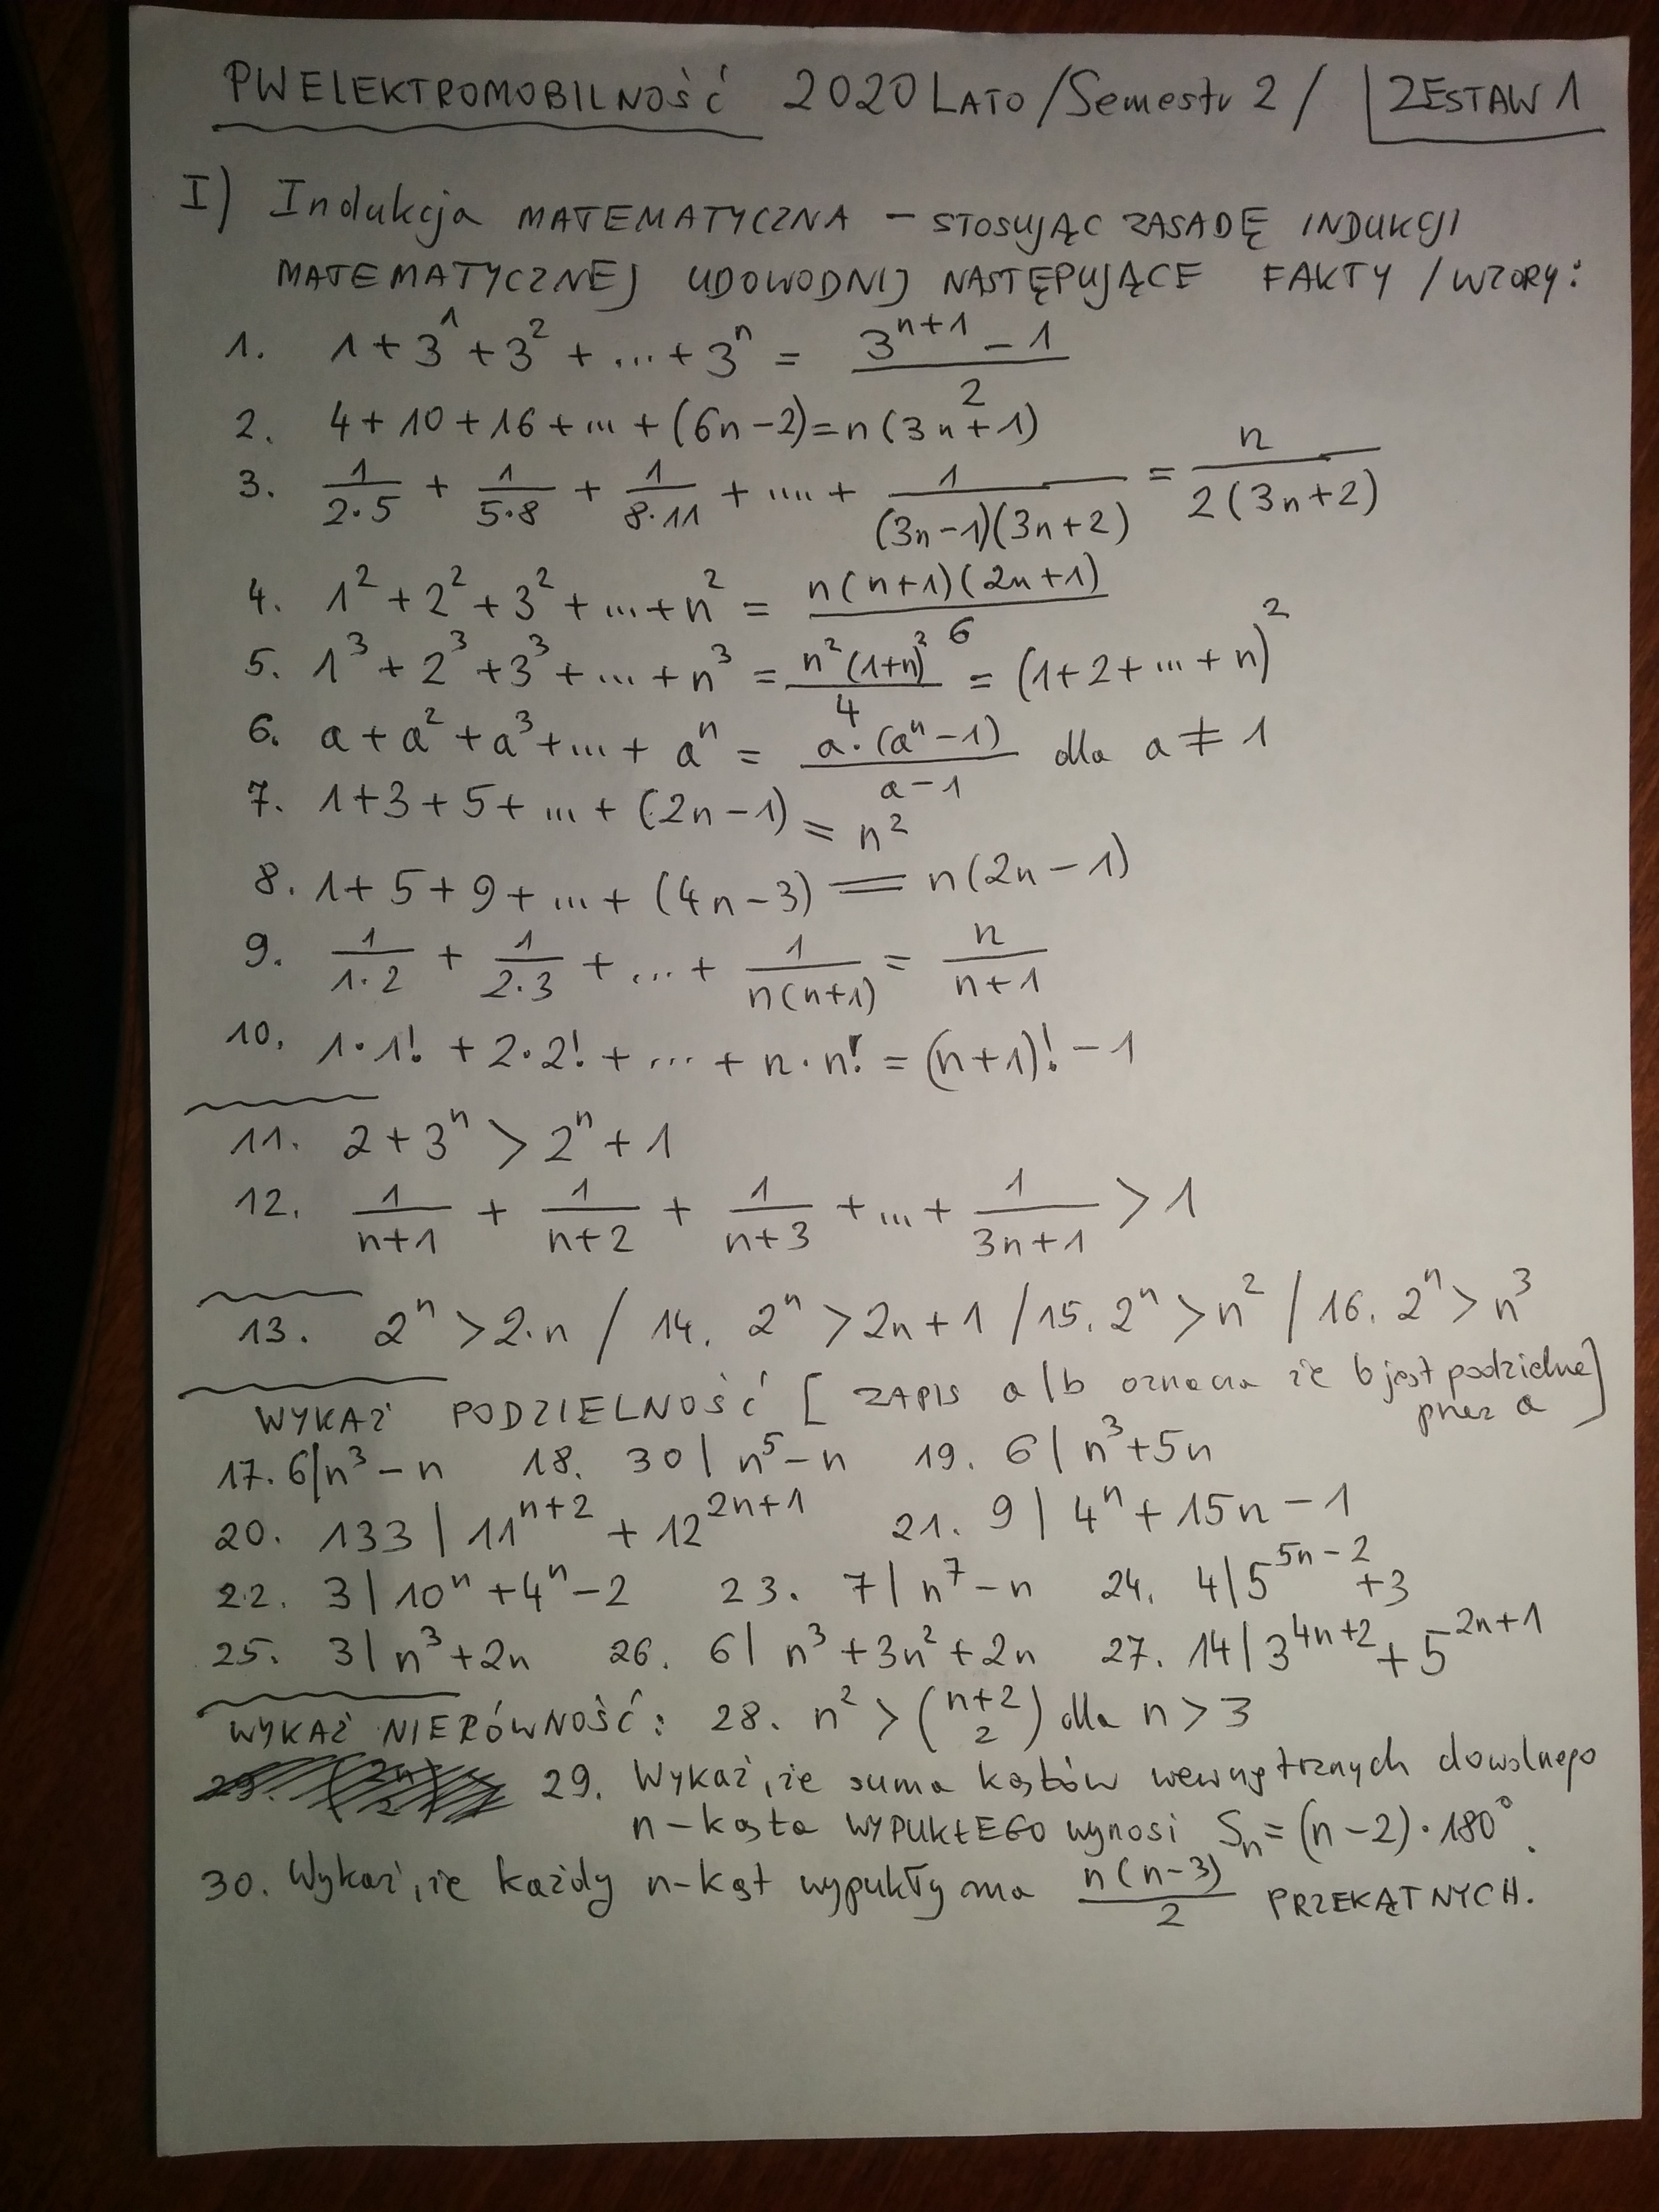 PW ELEKTROMOBILNOŚĆ 2020 LATO /Semestr 2 / ZESTAW 1
I) Indukcja MATEMATYCZNA – STOSUJĄC ZASADĘ INDUKCJI
MATEMATYCZNEJ UDOWODNIJ NASTĘPUJĄCE FAKTY / WZORY:
1. 1 + 3^1 + 3^2 + ... + 3^n = (3^(n+1) – 1)/2
2. 4 + 10 + 16 + ... + (6n – 2) = n(3n + 1)
3. 1/(2·5) + 1/(5·8) + 1/(8·11) + .... + 1/((3n–1)(3n+2)) = n/(2(3n+2))
4. 1² + 2² + 3² + ... + n² = n(n+1)(2n+1)/6
5. 1³ + 2³ + 3³ + ... + n³ = n²(1+n)²/4 = (1+2+...+n)²
6. a + a² + a³ + ... + a^n = a·(a^n – 1)/(a – 1) dla a ≠ 1
7. 1 + 3 + 5 + ... + (2n – 1) = n²
8. 1 + 5 + 9 + ... + (4n – 3) = n(2n – 1)
9. 1/(1·2) + 1/(2·3) + ... + 1/(n(n+1)) = n/(n+1)
10. 1·1! + 2·2! + ... + n·n! = (n+1)! – 1
11. 2 + 3^n > 2^n + 1
12. 1/(n+1) + 1/(n+2) + 1/(n+3) + ... + 1/(3n+1) > 1
13. 2^n > 2·n / 14. 2^n > 2n + 1 / 15. 2^n > n² / 16. 2^n > n³
WYKAŻ PODZIELNOŚĆ [ ZAPIS a|b oznacza że b jest podzielne przez a ]
17. 6|n³ – n 18. 30|n⁵ – n 19. 6|n³ + 5n
20. 133|11^(n+2) + 12^(2n+1) 21. 9|4^n + 15n – 1
22. 3|10^n + 4^n – 2 23. 7|n⁷ – n 24. 4|5^(5n–2) + 3
25. 3|n³ + 2n 26. 6|n³ + 3n² + 2n 27. 14|3^(4n+2) + 5^(2n+1)
WYKAŻ NIERÓWNOŚĆ: 28. n² > (n+2 2) dla n > 3
29. Wykaż, że suma kątów wewnętrznych dowolnego
n-kąta WYPUKŁEGO wynosi Sn = (n – 2)·180°.
30. Wykaż, że każdy n-kąt wypukły ma n(n–3)/2 PRZEKĄTNYCH.